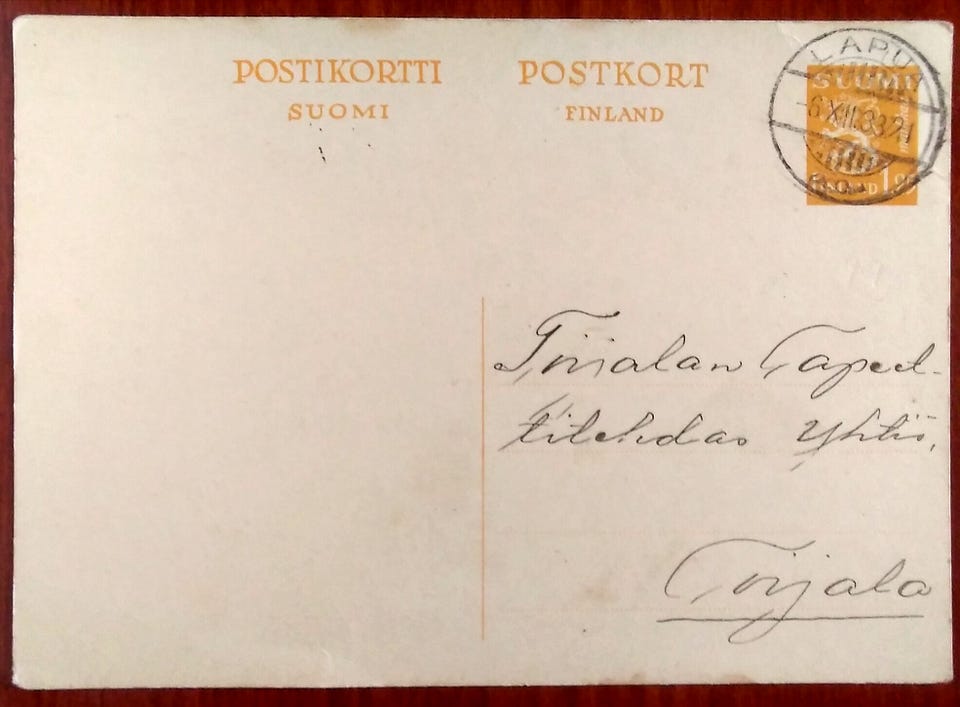 POSTIKORTTI
SUOMI
POSTKORT
FINLAND
LAPUA
-6.XII.33.21
SUOMI
FINLAND
Toijalan Tapet-
titehdas Yhtiö,
Toijala